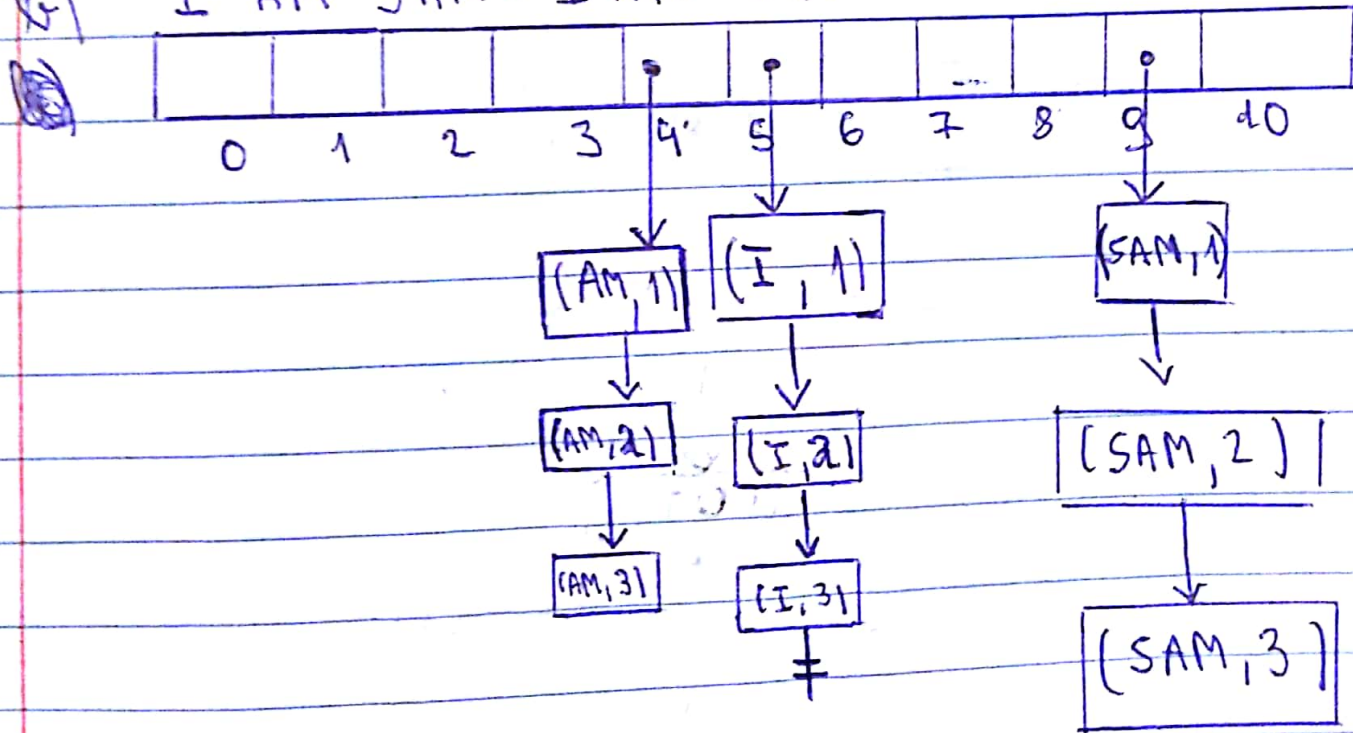 I AM SAM
0 1 2 3 4 5 6 7 8 9 10
(AM,1) (I, 1) (SAM,1)
(AM,2) (I,2) (SAM,2)
(AM,3) (I,3) (SAM,3)